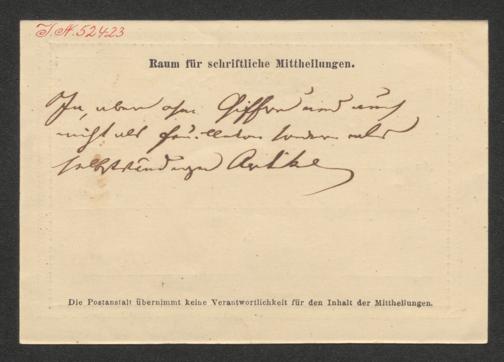 I. N. 52423
Raum für schriftliche Mittheilungen.
Ja, aber ohne Chiffre und auch
nicht als Feuilleton sondern als
selbstständigen Artikel
Die Postanstalt übernimmt keine Verantwortlichkeit für den Inhalt der Mittheilungen.